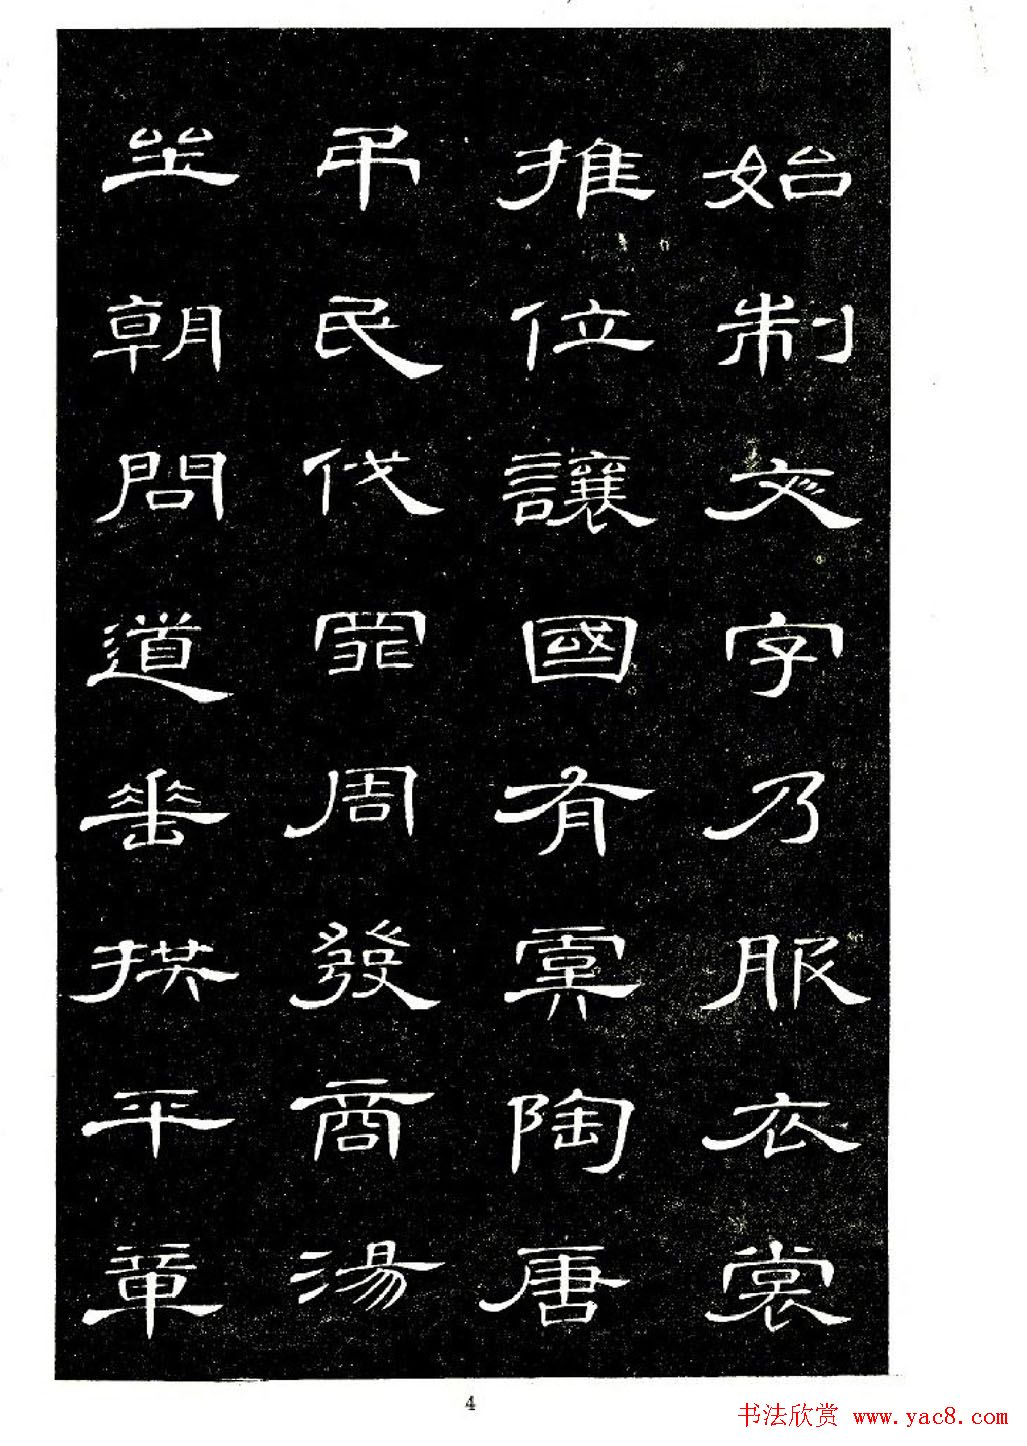 始制文字乃服衣裳
推位讓國有虞陶唐
弔民伐罪周發商湯
坐朝問道垂拱平章
4
书法欣赏 www.yac8.com